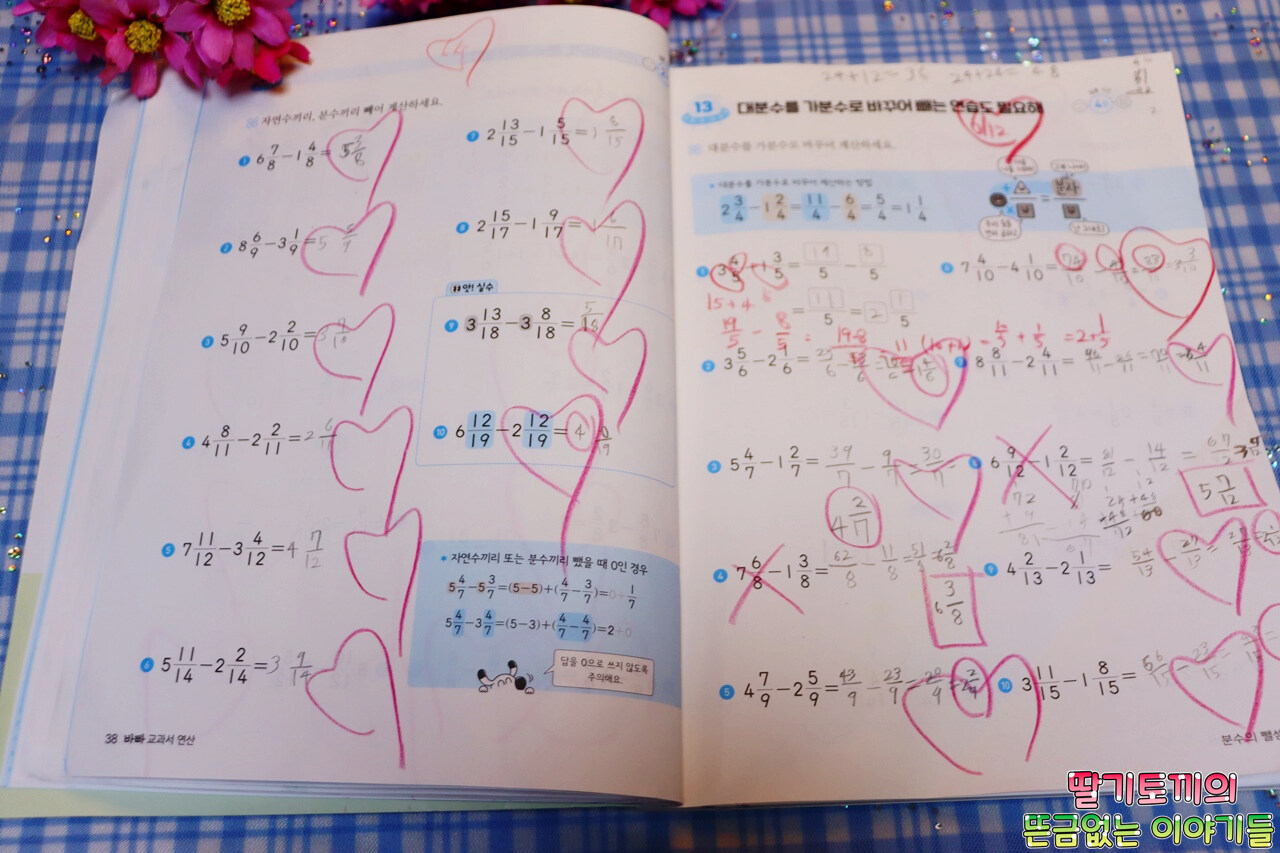 자연수끼리, 분수끼리 빼어 계산하세요.
1 6 7/8 - 1 4/8 = 5 3/8
2 8 6/9 - 3 1/9 = 5 5/9
3 5 9/10 - 2 2/10 = 3 7/10
4 4 8/11 - 2 2/11 = 2 6/11
5 7 11/12 - 3 4/12 = 4 7/12
6 5 11/14 - 2 2/14 = 3 9/14
7 2 13/15 - 1 5/15 = 1 8/15
8 2 15/17 - 1 9/17 = 1 6/17
앗! 실수
9 3 13/18 - 3 8/18 = 5/18
10 6 12/19 - 2 12/19 = 4 0/19
자연수끼리 또는 분수끼리 뺐을 때 0인 경우
5 4/7 - 5 3/7 = (5-5) + (4/7 - 3/7) = 0 + 1/7
5 4/7 - 3 4/7 = (5-3) + (4/7 - 4/7) = 2 + 0
답을 0으로 쓰지 않도록
주의해요.
38 바빠 교과서 연산
24+12=36 24+24=48
13 대분수를 가분수로 바꾸어 빼는 연습도 필요해
대분수를 가분수로 바꾸어 계산하세요.
대분수를 가분수로 바꾸어 계산하는 방법
2 3/4 - 1 2/4 = 11/4 - 6/4 = 5/4 = 1 1/4
분자
1 3 4/5 - 1 3/5 = 19/5 - 8/5
= 11/5 = 2 1/5
15+4
19/5 - 8/5 = 19-8
= 2+1/5
2 3 5/6 - 2 1/6 =
3 5 4/7 - 1 2/7 = 39/7 - 9/7 = 30/7
4 2/7
4 7 6/8 - 1 3/8 = 62/8 - 11/8 = 51/8
6 3/8
5 4 7/9 - 2 5/9 = 43/9 - 23/9 = 20/9 = 2 2/9
6 7 4/10 - 4 1/10 = 74/10 - 41/10 = 33/10 = 3 3/10
7 8 8/11 - 2 4/11 =
8 6 9/12 - 1 2/12 = 81/12 - 14/12 = 67/12
5 7/12
9 4 2/13 - 2 1/13 = 54/13 - 27/13 = 27/13
10 3 11/15 - 1 8/15 = 56/15 - 23/15 =
분수의 뺄셈
딸기토끼의
뜬금없는 이야기들